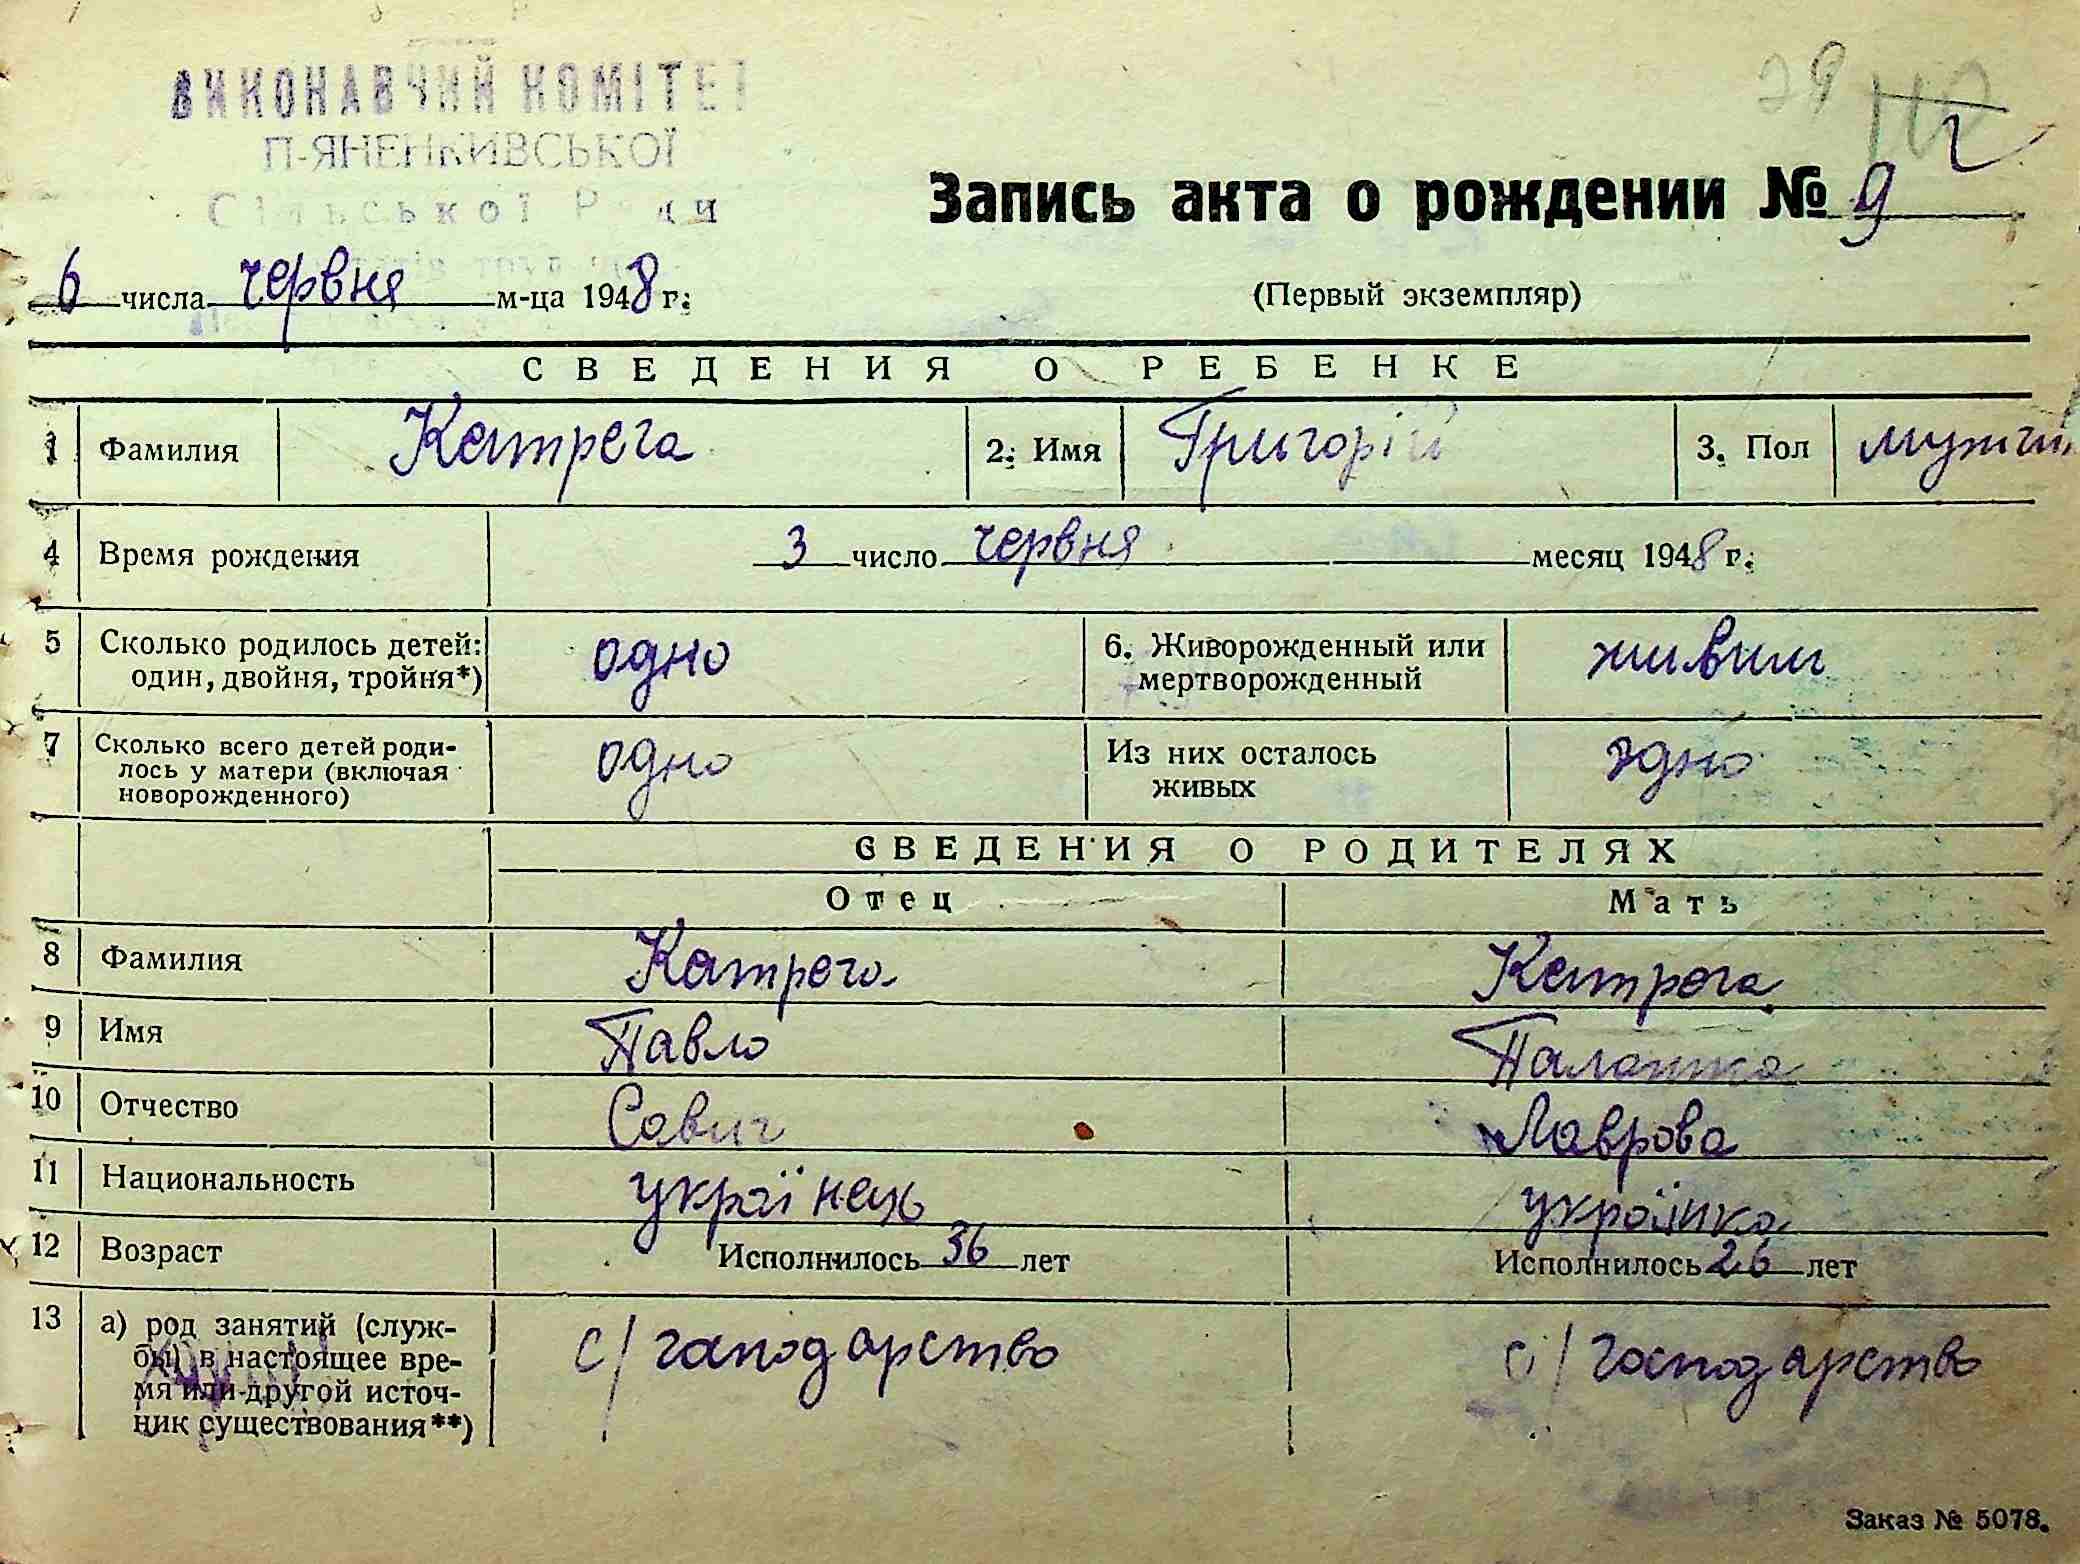 29
ВИКОНАВЧИЙ КОМІТЕТ
П-ЯНЕНКИВСЬКОЇ
Сільської Ради
Запись акта о рождении № 9
6 числа червня м-ца 1948 г.
(Первый экземпляр)
СВЕДЕНИЯ О РЕБЕНКЕ
1 Фамилия Катрега 2. Имя Григорій 3. Пол мужчин
4 Время рождения 3 число червня месяц 1948 г.
5 Сколько родилось детей: один, двойня, тройня*) одно 6. Живорожденный или мертворожденный живим
7 Сколько всего детей родилось у матери (включая новорожденного) одно Из них осталось живых одно
СВЕДЕНИЯ О РОДИТЕЛЯХ
Отец Мать
8 Фамилия Катрега Катрега
9 Имя Павло Палашка
10 Отчество Савич Лаврова
11 Национальность українець українка
12 Возраст Исполнилось 36 лет Исполнилось 26 лет
13 а) род занятий (служ-
бы) в настоящее вре-
мя или другой источ-
ник существования**) с/господарство с/господарство
Заказ № 5078.